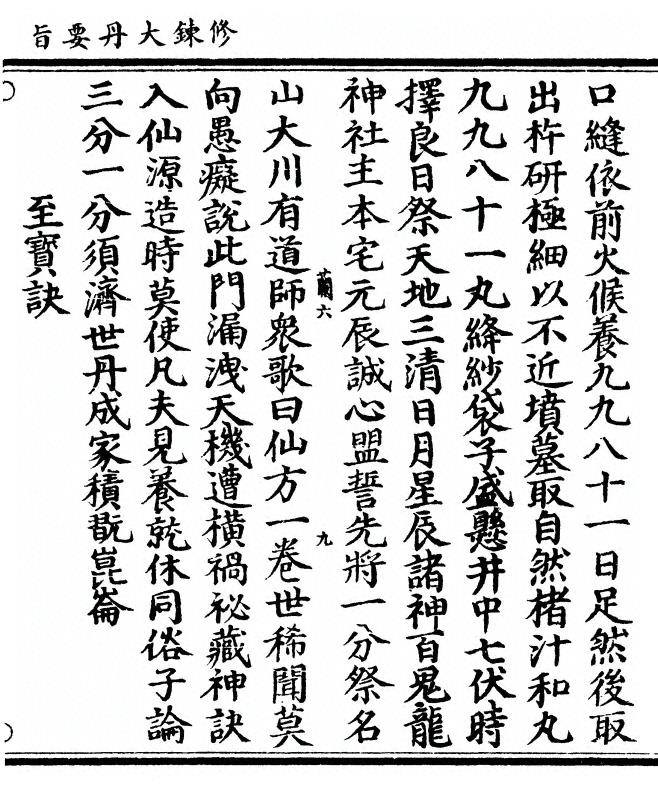 修鍊大丹要旨
口縫依前火候養九九八十一日足然後取
出杵研極細以不近墳墓取自然楮汁和丸
九九八十一丸絳紗袋子盛懸井中七伏時
擇良日祭天地三清日月星辰諸神百鬼龍
神社主本宅元辰誠心盟誓先將一分祭名
蘭六
九
山大川有道師衆歌曰仙方一卷世稀聞莫
向愚癡說此門漏洩天機遭橫禍祕藏神訣
入仙源造時莫使凡夫見養就休同俗子論
三分一分須濟世丹成家積翫崑崙
至寶訣